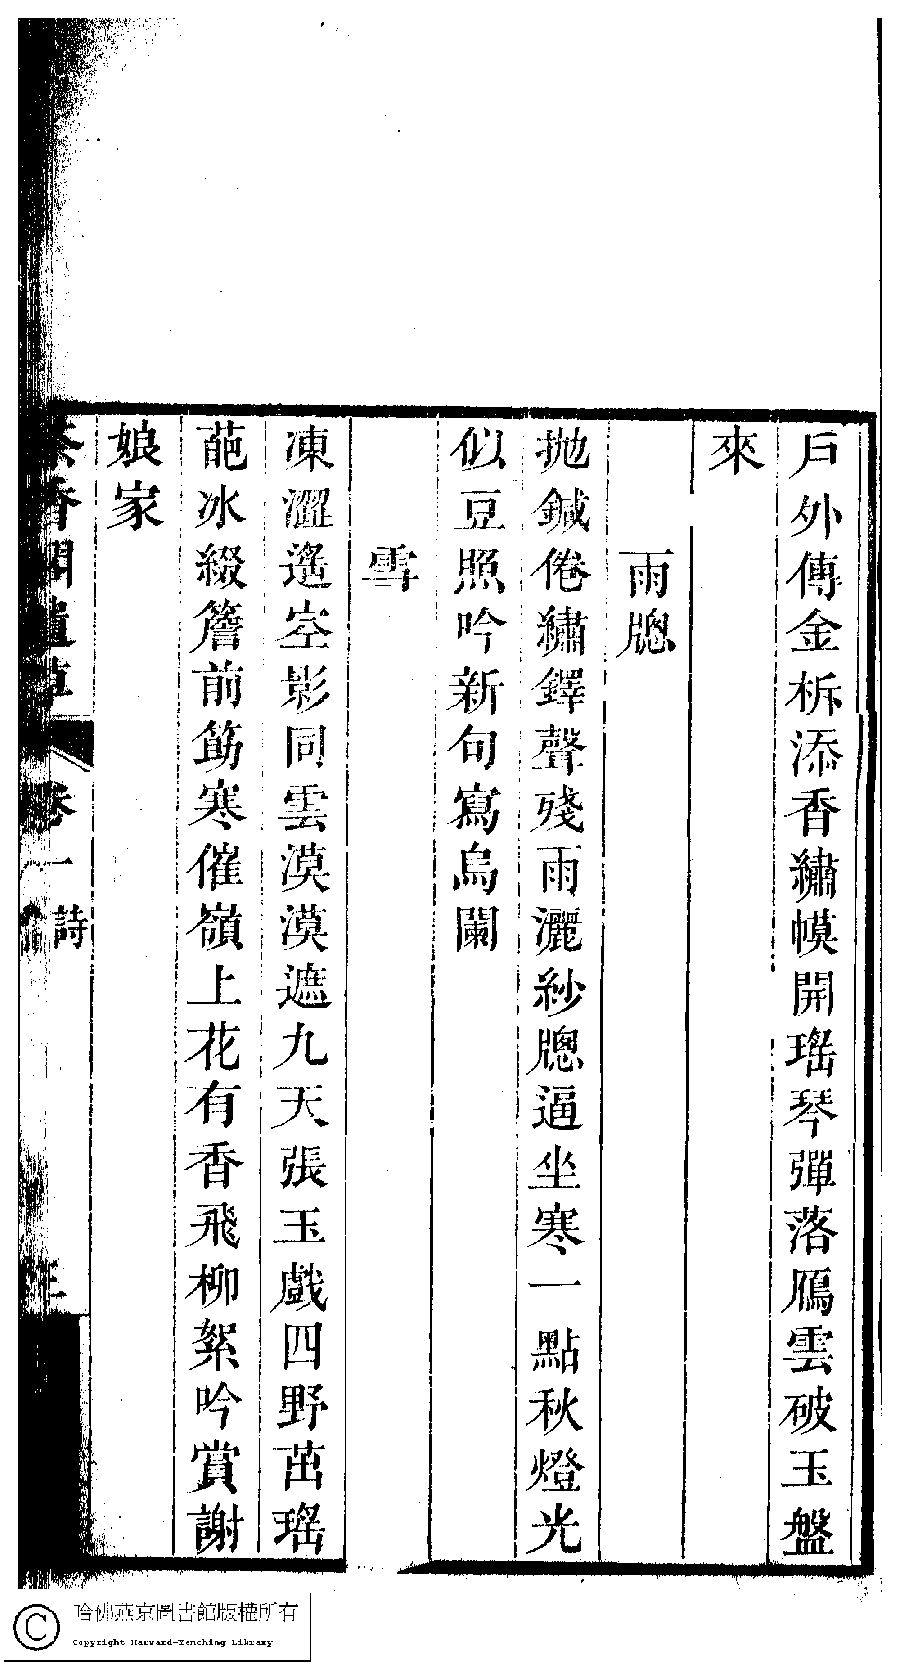 戶外傳金柝添香繡幙開瑤琴彈落鴈雲破玉盤
來
雨牕
拋鍼倦繡鐸聲殘雨灑紗牕逼坐寒一點秋燈光
似豆照吟新句寫烏闌
雪
凍澀遙空影同雲漠漠遮九天張玉戲四野茁瑤
葩冰綴簷前筯寒催嶺上花有香飛柳絮吟賞謝
娘家
香閣遺草 卷一 詩
哈佛燕京圖書館版權所有
Copyright Harvard-Yenching Library